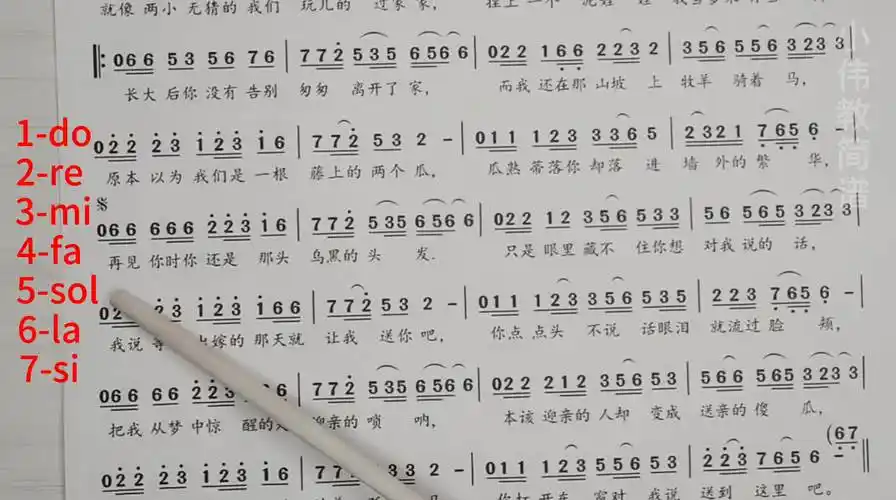 就像 两小 无猜的 我们 玩儿的 过家 家，
066 53 56 76 | 772 535 656 6 | 022 166 223 2 | 356 556 323 3 |
长大 后你 没有 告别 匆匆 离开了 家， 而我 还在那 山坡 上 牧羊 骑着 马，
022 23 123 16 | 772 53 2 - | 011 123 336 5 | 2321 765 6 - |
原本 以为 我们是 一根 藤上的 两个 瓜， 瓜熟 蒂落你 却落 进 墙 外的 繁 华，
066 666 223 16 | 772 535 656 6 | 022 12 356 533 | 56 565 323 3 |
再见 你时你 还是 那头 乌黑的 头 发. 只是 眼里 藏不 住你想 对我 说的 话，
123 166 | 772 53 2 - | 011 123 356 535 | 223 765 6 - |
我说 嫁的 那天就 让我 送你 吧， 你点 点头 不说 话眼泪 就流过 脸 颊，
066 66 | 772 535 656 6 | 022 212 356 53 | 566 565 323 3 |
把我 从梦 中惊 醒的 迎亲的 唢 呐， 本该 迎亲的 人却 变成 送亲的 傻 瓜，
(67
022 23 123 16 | 011 123 556 53 | 223 765 6 -
我说 送到 这里 吧。
1-do
2-re
3-mi
4-fa
5-sol
6-la
7-si
小伟教简谱